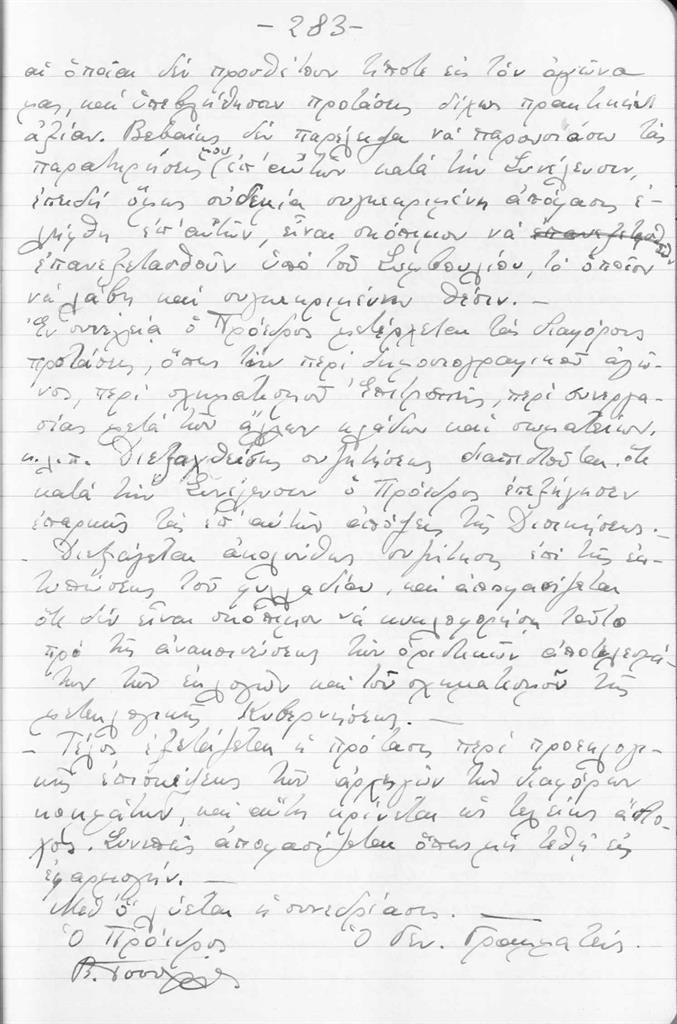 -283-
αἱ ὁποῖαι δέν προσθέτουν τίποτε εἰς τόν ἀγῶνα
μας, καί ὑπεβλήθησαν προτάσεις δίχως πρακτικήν
ἀξίαν. Βεβαίως δέν παρέλειψα νά παρουσιάσω τάς
παρατηρήσεις μου ἐπ' αὐτῶν κατά τήν Συνέλευσιν,
ἐπειδή ὅμως οὐδεμία συγκεκριμένη ἀπόφασις ἐ-
λήφθη ἐπ' αὐτῶν, εἶναι σκόπιμον νά
ἐπανεξετασθοῦν ὑπό τοῦ Συμβουλίου, τό ὁποῖον
νά λάβῃ καί συγκεκριμένην θέσιν. —
Ἐν συνεχείᾳ ὁ Πρόεδρος μετέρχεται τάς διαφόρους
προτάσεις, ὅπως τήν περί δημοσιογραφικοῦ ἀγῶ-
νος, περί σχηματισμοῦ Ἐπιτροπῆς, περί συνεργα-
σίας μετά τῶν ἄλλων κλάδων καί σωματείων,
κ.λ.π. Διεξαχθείσης συζητήσεως διαπιστοῦται ὅτι
κατά τήν Συνέλευσιν ὁ Πρόεδρος ἐπεξήγησεν
ἐπαρκῶς τάς ἐπ' αὐτῶν ἀπόψεις τῆς Διοικήσεως. —
- Διεξάγεται ἀκολούθως συζήτησις ἐπί τῆς ἐκ-
τυπώσεως τοῦ φυλλαδίου, καί ἀποφασίζεται
ὅτι δέν εἶναι σκόπιμον νά κυκλοφορήσῃ τοῦτο
πρό τῆς ἀνακοινώσεως τῶν ὁριστικῶν ἀποτελεσμά-
των τῶν ἐκλογῶν καί τοῦ σχηματισμοῦ τῆς
μετεκλογικῆς Κυβερνήσεως. —
- Τέλος ἐξετάζεται ἡ πρότασις περί προεκλογι-
κῆς ἐπισκέψεως τῶν ἀρχηγῶν τῶν διαφόρων
κομμάτων, καί αὕτη κρίνεται ὡς τελείως ἄστο-
χος. Συνεπῶς ἀποφασίζεται ὅπως μή τεθῇ εἰς
ἐφαρμογήν. —
Μεθ' ὅ λύεται ἡ συνεδρίασις. —
Ὁ Πρόεδρος Ὁ Γεν. Γραμματεύς.